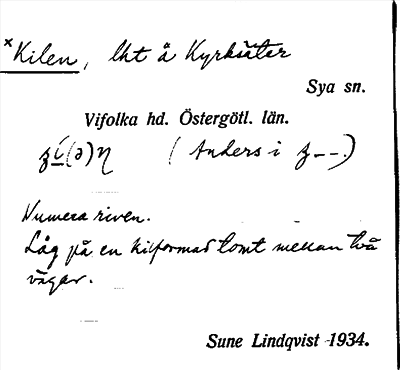 ×Kilen, lht å Kyrksäter
Sya sn.
Vifolka hd. Östergötl. län.
(Anders i ʒ---.)
Numera riven.
Låg på en kilformad tomt mellan två
vägar.
Sune Lindqvist 1934.